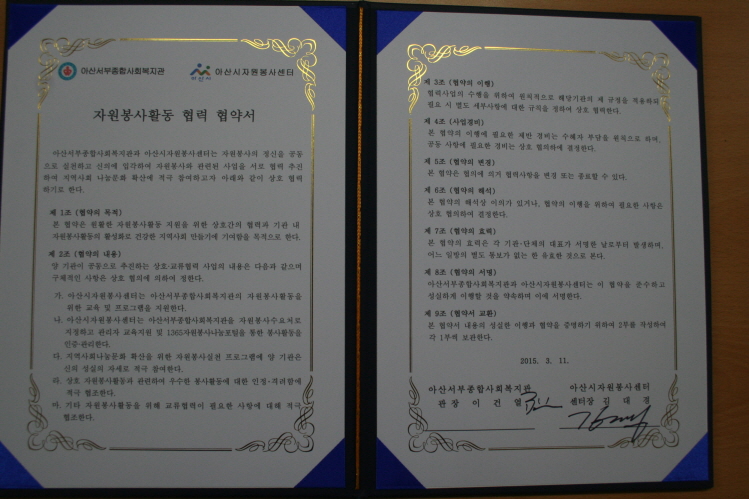 아산서부종합사회복지관 아산시 아산시자원봉사센터
자원봉사활동 협력 협약서
아산서부종합사회복지관과 아산시자원봉사센터는 자원봉사의 정신을 공동
으로 실천하고 신의에 입각하여 자원봉사와 관련된 사업을 서로 협력 추진
하여 지역사회 나눔문화 확산에 적극 참여하고자 아래와 같이 상호 협력
하기로 한다.
제 1조 (협약의 목적)
본 협약은 원활한 자원봉사활동 지원을 위한 상호간의 협력과 기관 내
자원봉사활동의 활성화로 건강한 지역사회 만들기에 기여함을 목적으로 한다.
제 2조 (협약의 내용)
양 기관이 공동으로 추진하는 상호·교류협력 사업의 내용은 다음과 같으며
구체적인 사항은 상호 협의에 의하여 정한다.
가. 아산시자원봉사센터는 아산서부종합사회복지관의 자원봉사활동을
위한 교육 및 프로그램을 지원한다.
나. 아산시자원봉사센터는 아산서부종합사회복지관을 자원봉사수요처로
지정하고 관리자 교육지원 및 1365자원봉사나눔포털을 통한 봉사활동을
인증·관리한다.
다. 지역사회나눔문화 확산을 위한 자원봉사실천 프로그램에 양 기관은
신의 성실의 자세로 적극 참여한다.
라. 상호 자원봉사활동과 관련하여 우수한 봉사활동에 대한 인정·격려함에
적극 협조한다.
마. 기타 자원봉사활동을 위해 교류협력이 필요한 사항에 대해 적극
협조한다.
제 3조 (협약의 이행)
협력사업의 수행을 위하여 원칙적으로 해당기관의 제 규정을 적용하되
필요 시 별도 세부사항에 대한 규칙을 정하여 상호 협력한다.
제 4조 (사업경비)
본 협약의 이행에 필요한 제반 경비는 수혜자 부담을 원칙으로 하며,
공동 사항에 필요한 경비는 상호 협의하에 결정한다.
제 5조 (협약의 변경)
본 협약은 협의에 의거 협력사항을 변경 또는 종료할 수 있다.
제 6조 (협약의 해석)
본 협약의 해석상 이의가 있거나, 협약의 이행을 위하여 필요한 사항은
상호 협의하여 결정한다.
제 7조 (협약의 효력)
본 협약의 효력은 각 기관·단체의 대표가 서명한 날로부터 발생하며,
어느 일방의 별도 통보가 없는 한 유효한 것으로 본다.
제 8조 (협약의 서명)
아산서부종합사회복지관과 아산시자원봉사센터는 이 협약을 준수하고
성실하게 이행할 것을 약속하며 이에 서명한다.
제 9조 (협약서 교환)
본 협약서 내용의 성실한 이행과 협약을 증명하기 위하여 2부를 작성하여
각 1부씩 보관한다.
2015. 3. 11.
아산서부종합사회복지관 아산시자원봉사센터
관 장 이 건 열 센터장 김 대 경